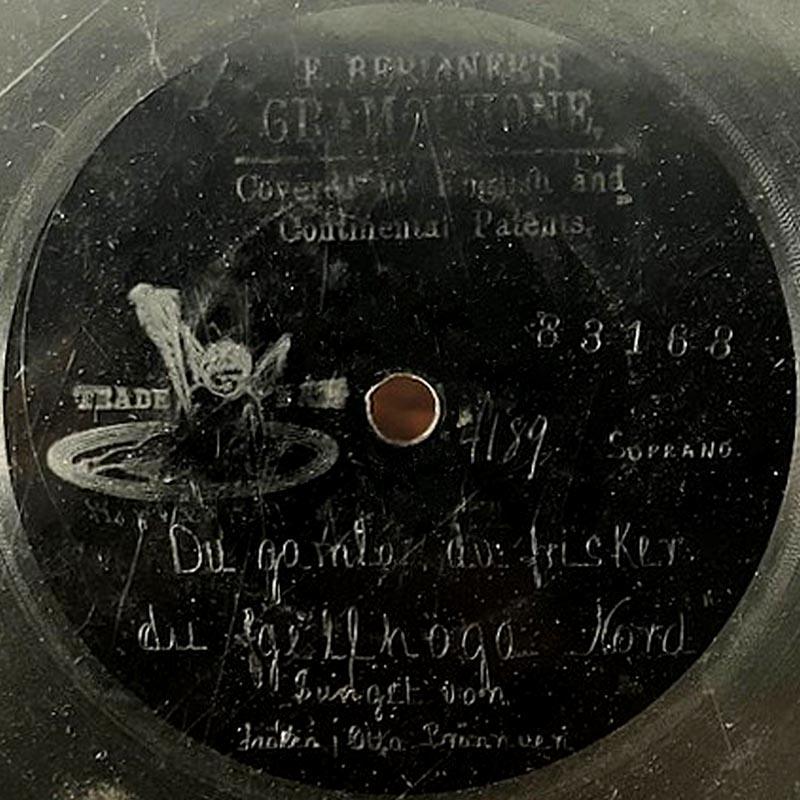 E. BERLINER'S
GRAMOPHONE.
Covered by English and
Continental Patents.
83168
TRADE MARK
4189 SOPRANO.
Du gamla du frisker
du fjellhoga Nord
Sunget von